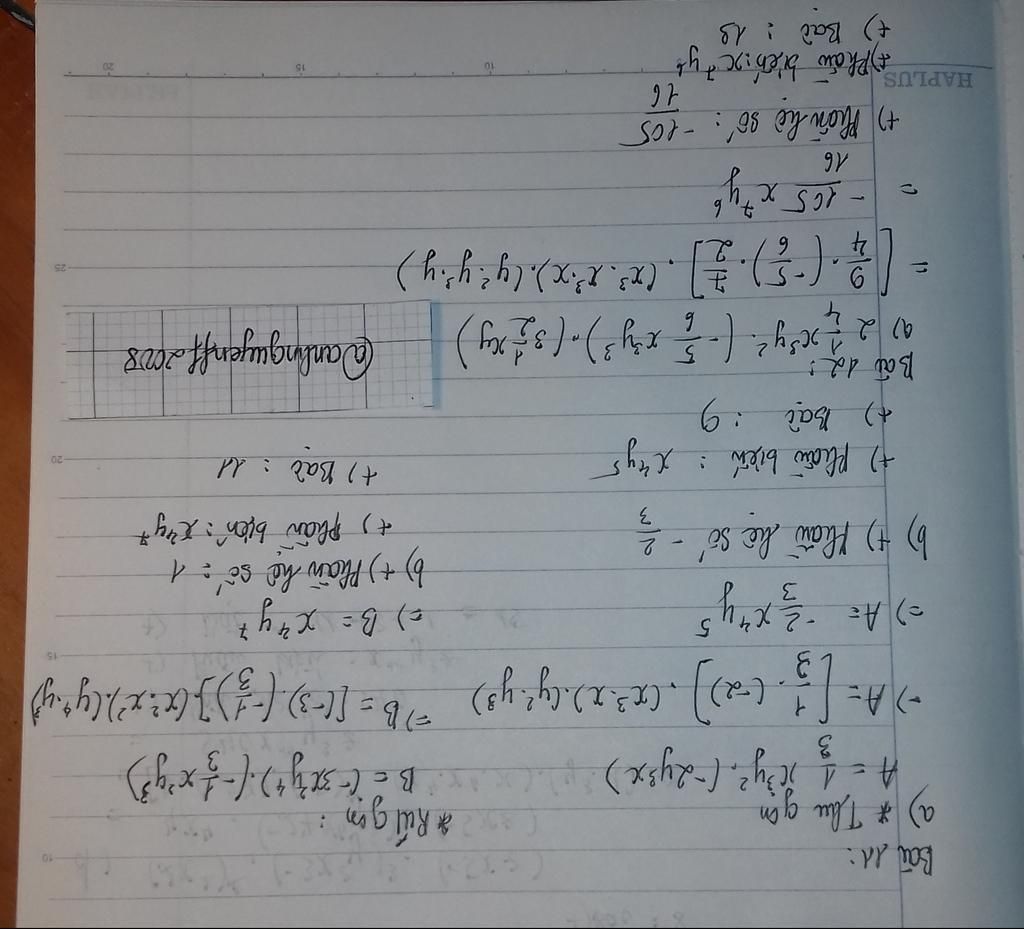 Bài 11:
a) * Thu gọn
A = 1/3 x³y² . (-2y³x)
=) A = [1/3 . (-2)] . (x³.x).(y².y³)
=) A = -2/3 x⁴y⁵
b) +) Phần hệ số : -2/3
+) Phần biến : x⁴y⁵
+) Bậc : 9
* Rút gọn :
B = (-3x²y⁴).(-1/3 x²y³)
=) B = [(-3).(-1/3)].(x².x²).(y⁴.y³)
=) B = x⁴y⁷
b) +) Phần hệ số : 1
+) Phần biến : x⁴y⁷
+) Bậc : 11
Bài 12:
a) 2 1/4 x³y² . (-5/6 x³y³) . (3 1/2 xy)
@anhnguyenff2008
= [9/4 . (-5/6) . 7/2] . (x³.x³.x).(y².y³.y)
= -105/16 x⁷y⁶
+) Phần hệ số : -105/16
+) Phần biến : x⁷y⁶
+) Bậc : 13
HAPLUS
10
15
20
25
10
15
20